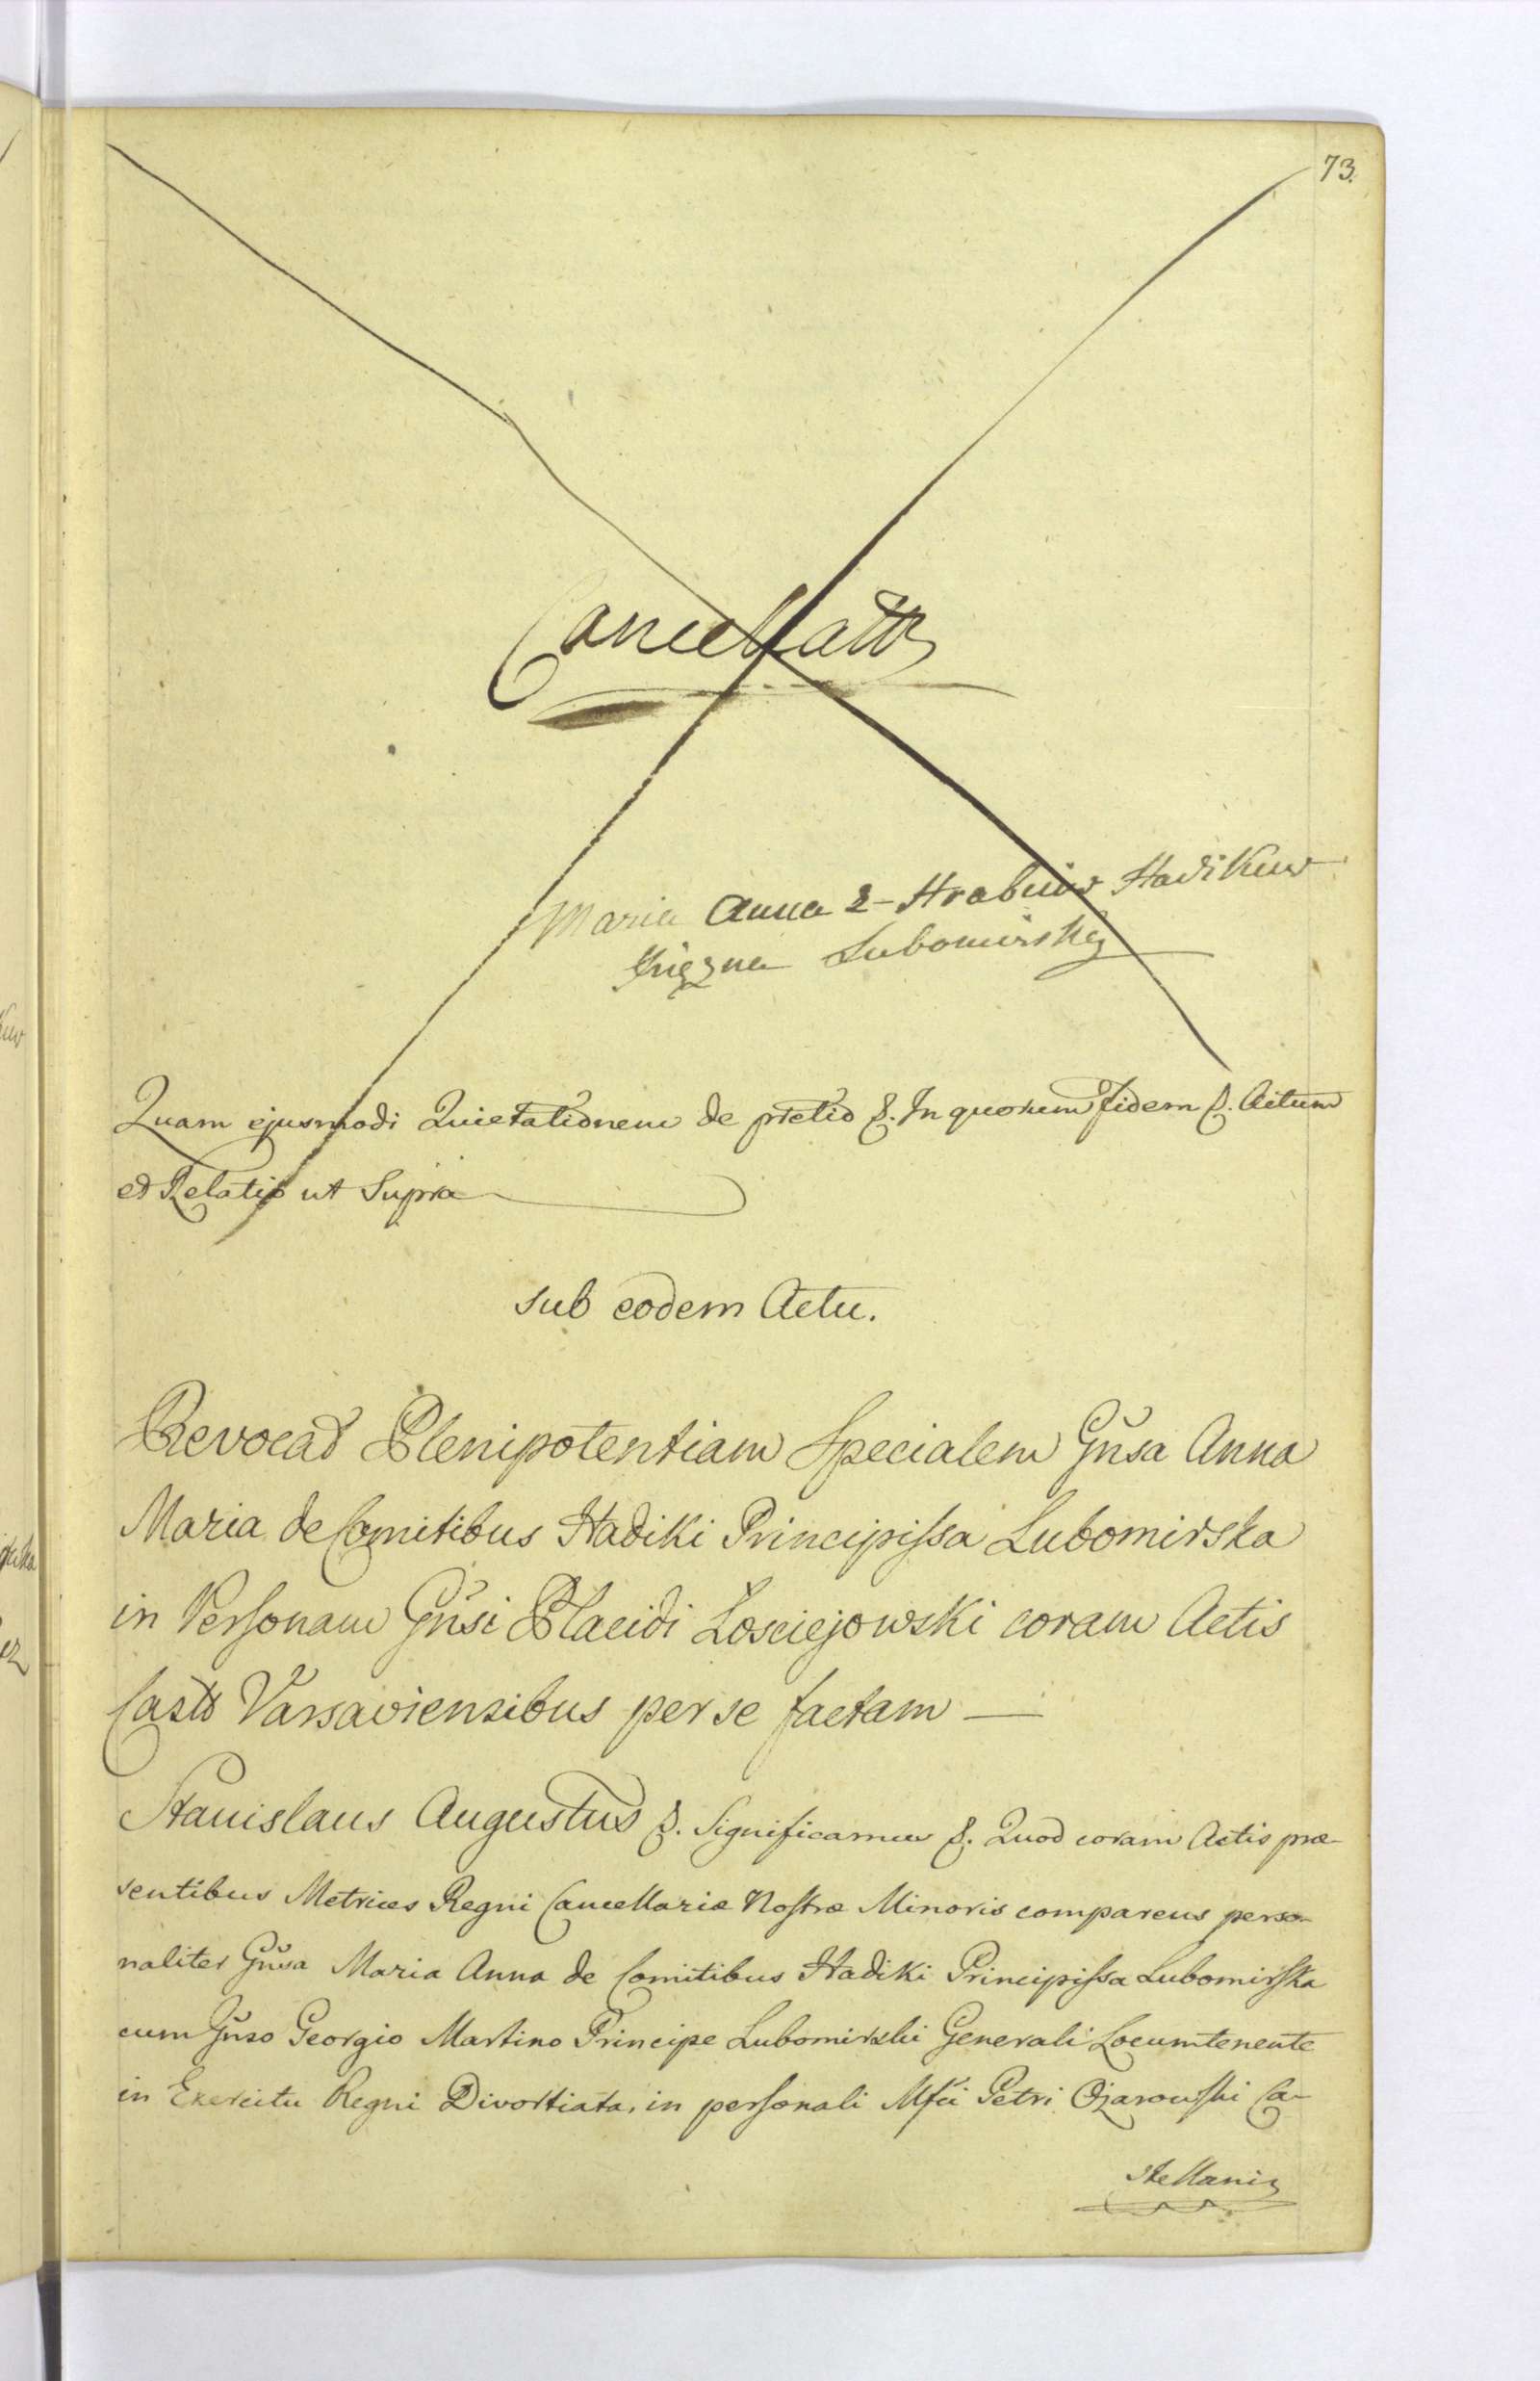 73.
Cancellatt
Maria Anna z Hrabiuw Hadikuw
Xiężna Lubomirska
Quam ejusmodi Quietationem de pretio &. In quorum fidem &. Actum
et Relatio ut Supra
sub eodem Actu.
Revocat Plenipotentiam Specialem Gñsa Anna
Maria de Comitibus Hadiki Principissa Lubomirska
in Personam Gñsi Placidi Łosciejowski coram Actis
Castr Varsaviensibus per se factam —
Stanislaus Augustus &. Significamus &. Quod coram Actis præ-
sentibus Metrices Regni Cancellariæ Nostræ Minoris comparens perso-
naliter Gñsa Maria Anna de Comitibus Hadiki Principissa Lubomirska
cum Gñso Georgio Martino Principe Lubomirski Generali Locumtenente
in Exercitu Regni Divortiata, in personali Mfci Petri Ożarowski Ca-
stellani